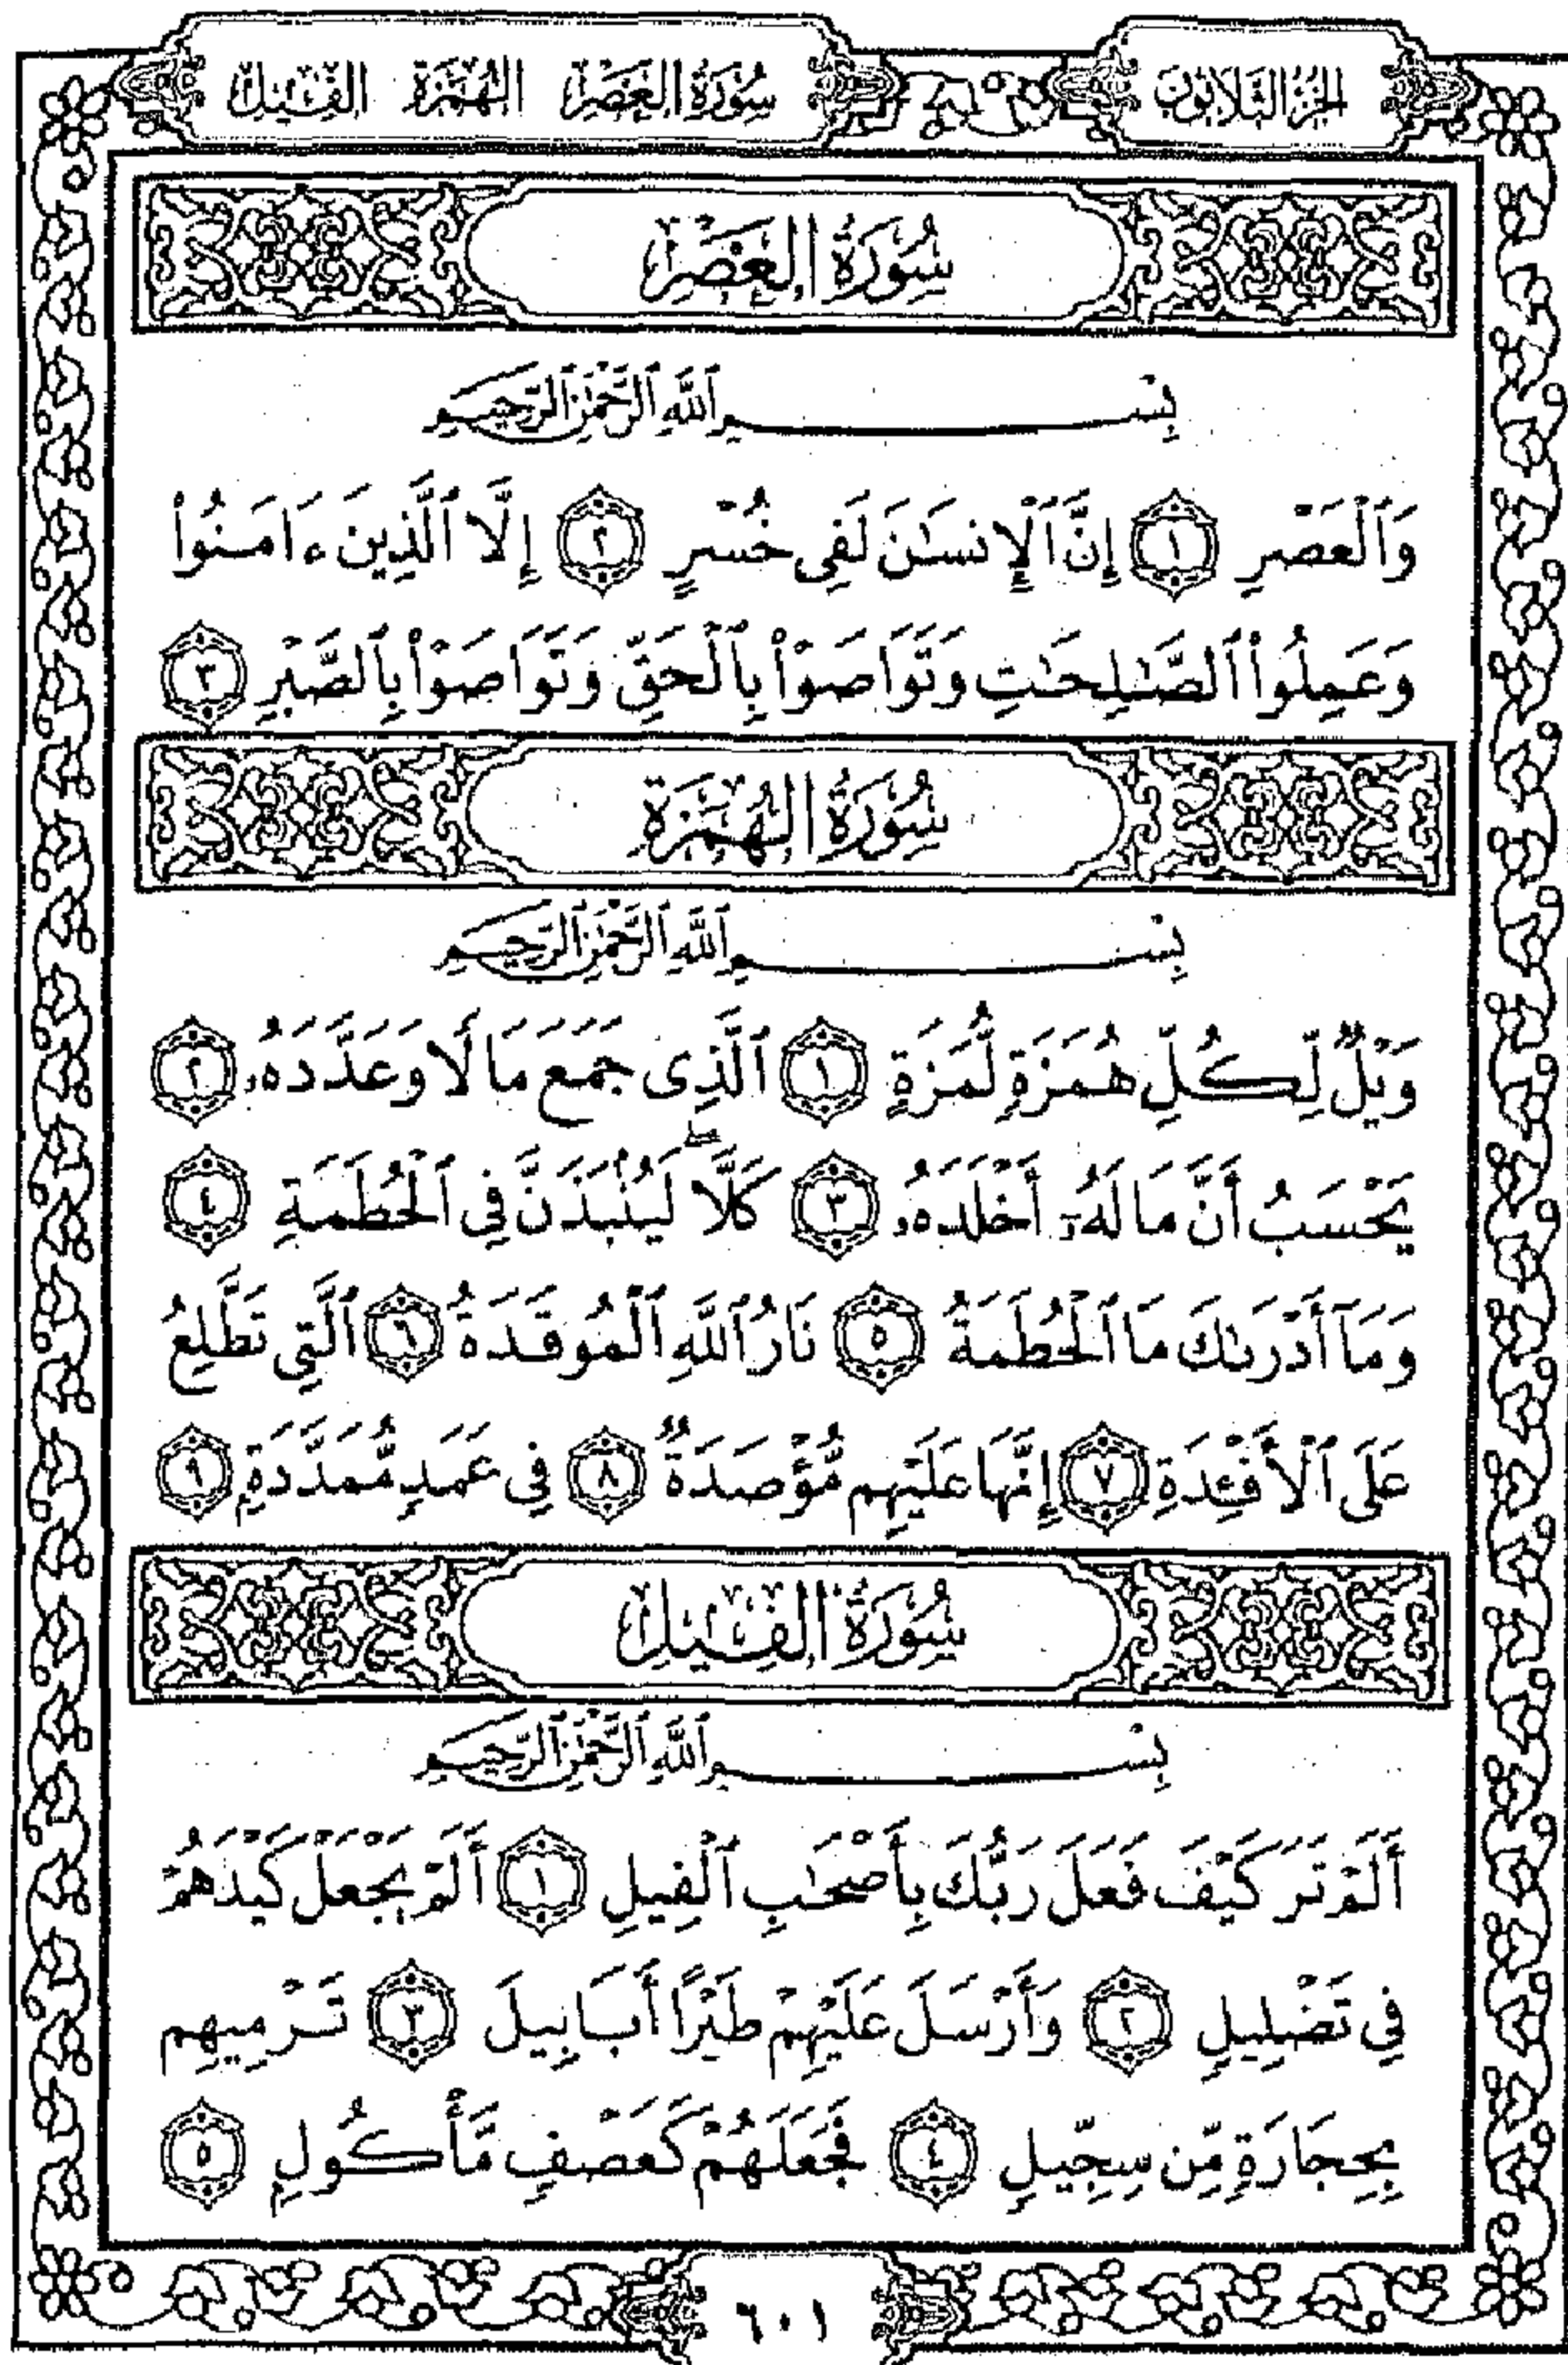 الجزء الثلاثون
سورة العصر الهمزة الفيل
سُورَةُ العَصْرِ
بِسْمِ ٱللَّهِ ٱلرَّحْمَٰنِ ٱلرَّحِيمِ
وَٱلْعَصْرِ ١ إِنَّ ٱلْإِنسَٰنَ لَفِى خُسْرٍ ٢ إِلَّا ٱلَّذِينَ ءَامَنُوا۟
وَعَمِلُوا۟ ٱلصَّٰلِحَٰتِ وَتَوَاصَوْا۟ بِٱلْحَقِّ وَتَوَاصَوْا۟ بِٱلصَّبْرِ ٣
سُورَةُ الهُمَزَةِ
بِسْمِ ٱللَّهِ ٱلرَّحْمَٰنِ ٱلرَّحِيمِ
وَيْلٌ لِّكُلِّ هُمَزَةٍ لُّمَزَةٍ ١ ٱلَّذِى جَمَعَ مَالًا وَعَدَّدَهُۥ ٢
يَحْسَبُ أَنَّ مَالَهُۥٓ أَخْلَدَهُۥ ٣ كَلَّا ۖ لَيُنۢبَذَنَّ فِى ٱلْحُطَمَةِ ٤
وَمَآ أَدْرَىٰكَ مَا ٱلْحُطَمَةُ ٥ نَارُ ٱللَّهِ ٱلْمُوقَدَةُ ٦ ٱلَّتِى تَطَّلِعُ
عَلَى ٱلْأَفْـِٔدَةِ ٧ إِنَّهَا عَلَيْهِم مُّؤْصَدَةٌ ٨ فِى عَمَدٍ مُّمَدَّدَةٍۭ ٩
سُورَةُ الفِيلِ
بِسْمِ ٱللَّهِ ٱلرَّحْمَٰنِ ٱلرَّحِيمِ
أَلَمْ تَرَ كَيْفَ فَعَلَ رَبُّكَ بِأَصْحَٰبِ ٱلْفِيلِ ١ أَلَمْ يَجْعَلْ كَيْدَهُمْ
فِى تَضْلِيلٍ ٢ وَأَرْسَلَ عَلَيْهِمْ طَيْرًا أَبَابِيلَ ٣ تَرْمِيهِم
بِحِجَارَةٍ مِّن سِجِّيلٍ ٤ فَجَعَلَهُمْ كَعَصْفٍ مَّأْكُولٍۭ ٥
٦٠١